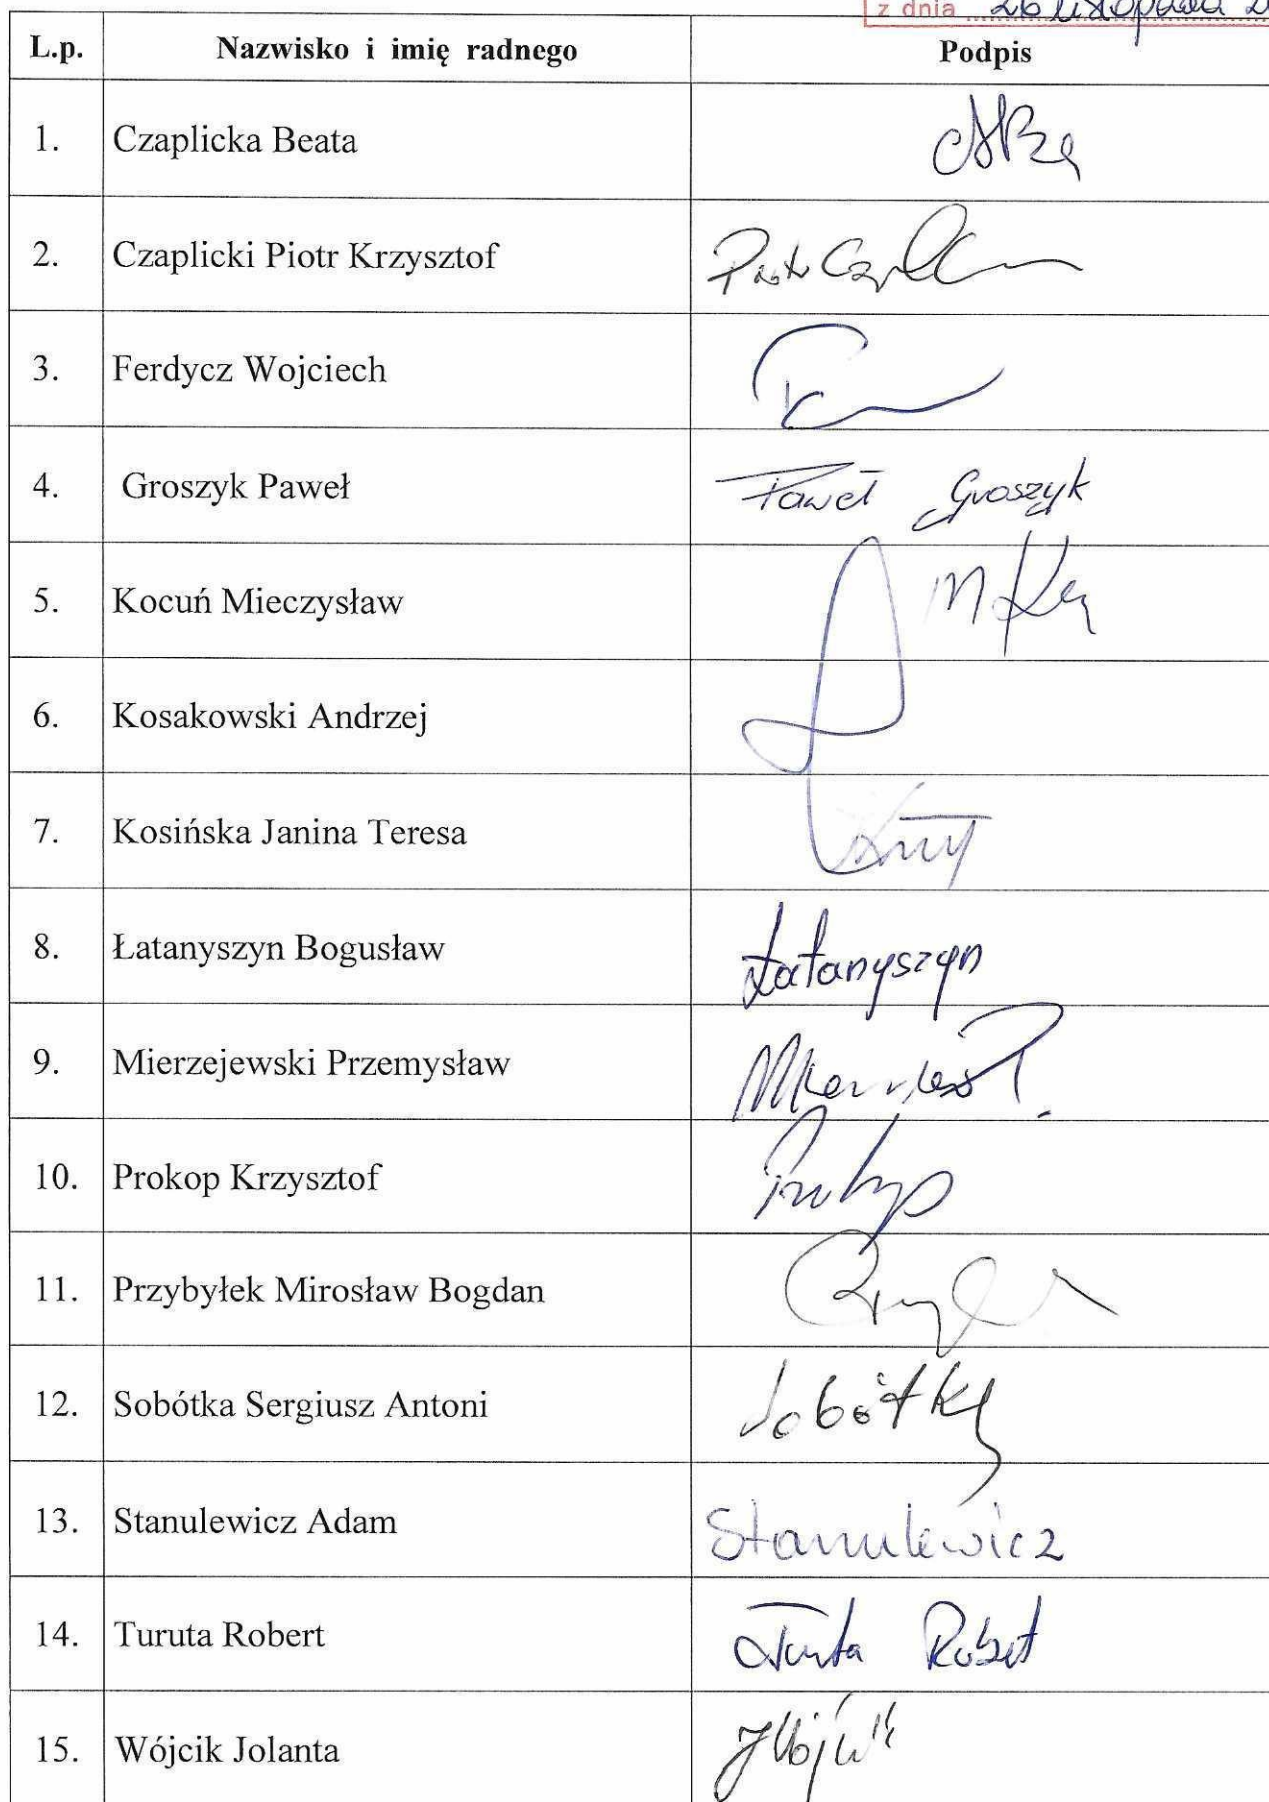 z dnia 26 listopada
L.p. Nazwisko i imię radnego Podpis
1. Czaplicka Beata
2. Czaplicki Piotr Krzysztof
3. Ferdycz Wojciech
4. Groszyk Paweł Paweł Groszyk
5. Kocuń Mieczysław
6. Kosakowski Andrzej
7. Kosińska Janina Teresa
8. Łatanyszyn Bogusław Łatanyszyn
9. Mierzejewski Przemysław
10. Prokop Krzysztof
11. Przybyłek Mirosław Bogdan
12. Sobótka Sergiusz Antoni Sobótka
13. Stanulewicz Adam Stanulewicz
14. Turuta Robert Turuta Robert
15. Wójcik Jolanta JWójcik